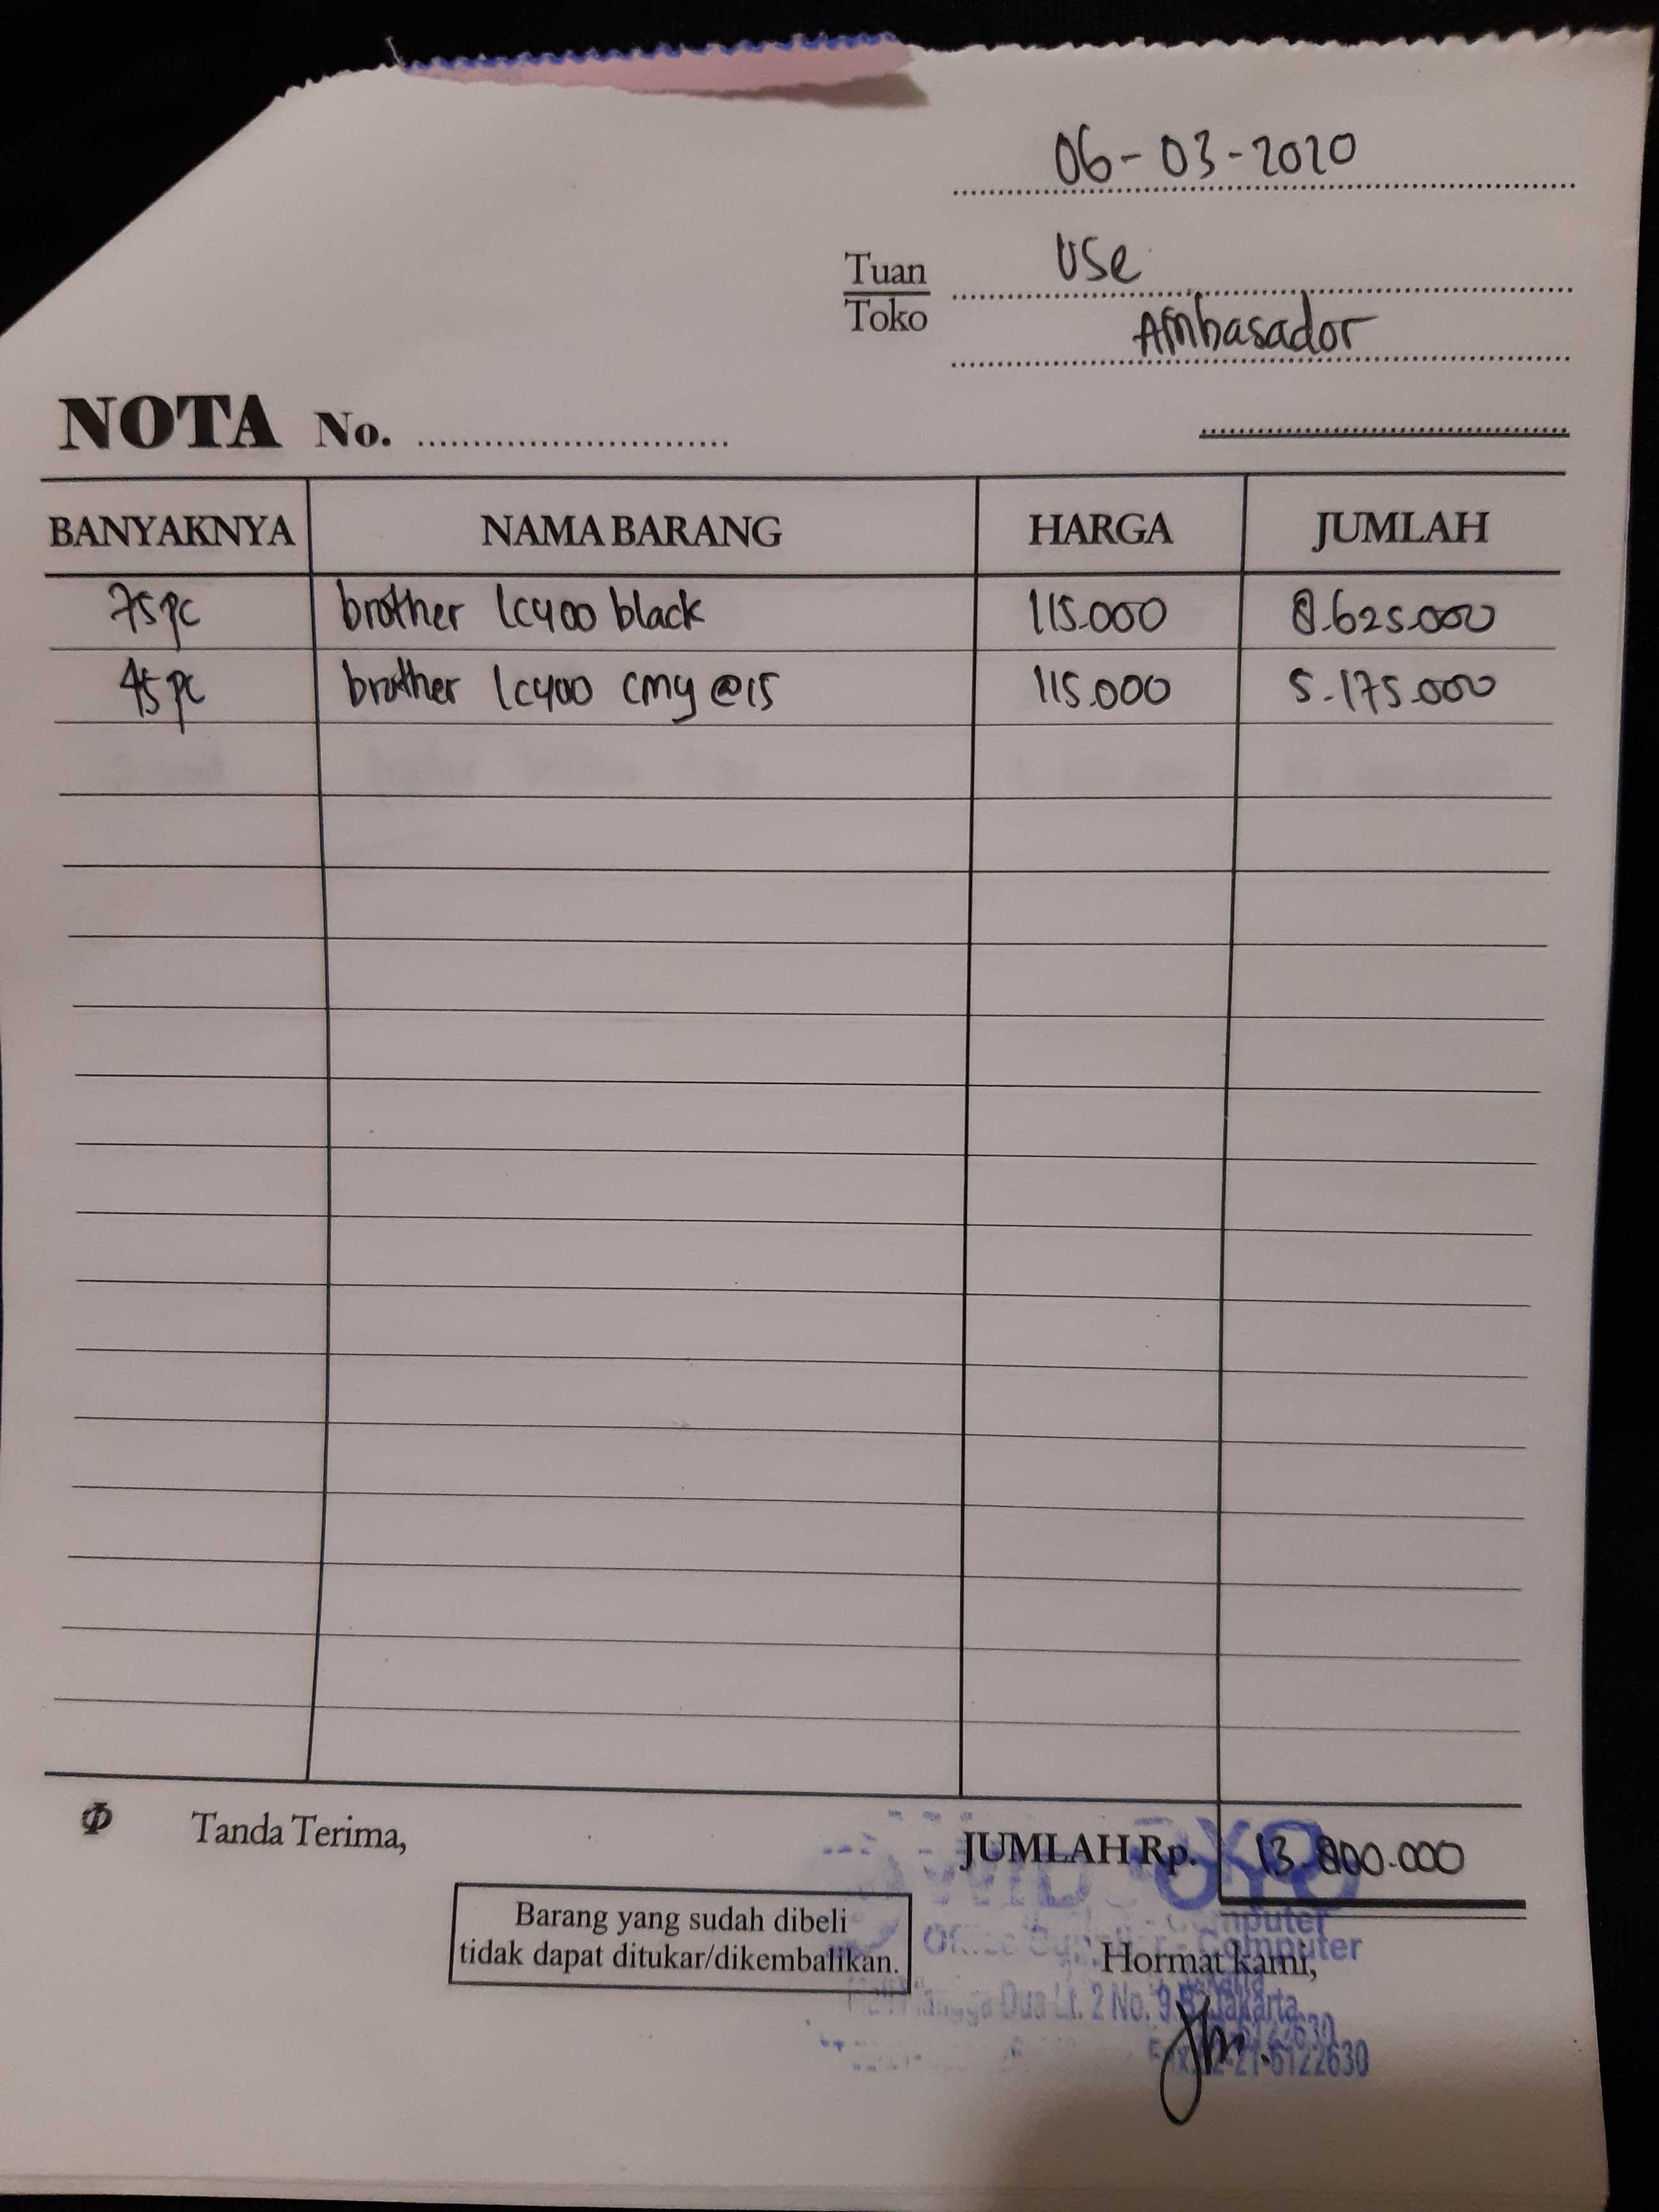 06-03-2020
Tuan Use
Toko Ambasador
NOTA No.
BANYAKNYA NAMA BARANG HARGA JUMLAH
75 pc brother lc400 black 115.000 8.625.000
45 pc brother lc400 cmy @15 115.000 5.175.000
Φ Tanda Terima, JUMLAH Rp. 13.800.000
Computer
Barang yang sudah dibeli
tidak dapat ditukar/dikembalikan.
Computer
Hormat kami,
Dua Lt. 2 No. Jakarta
6122630
21-6122630